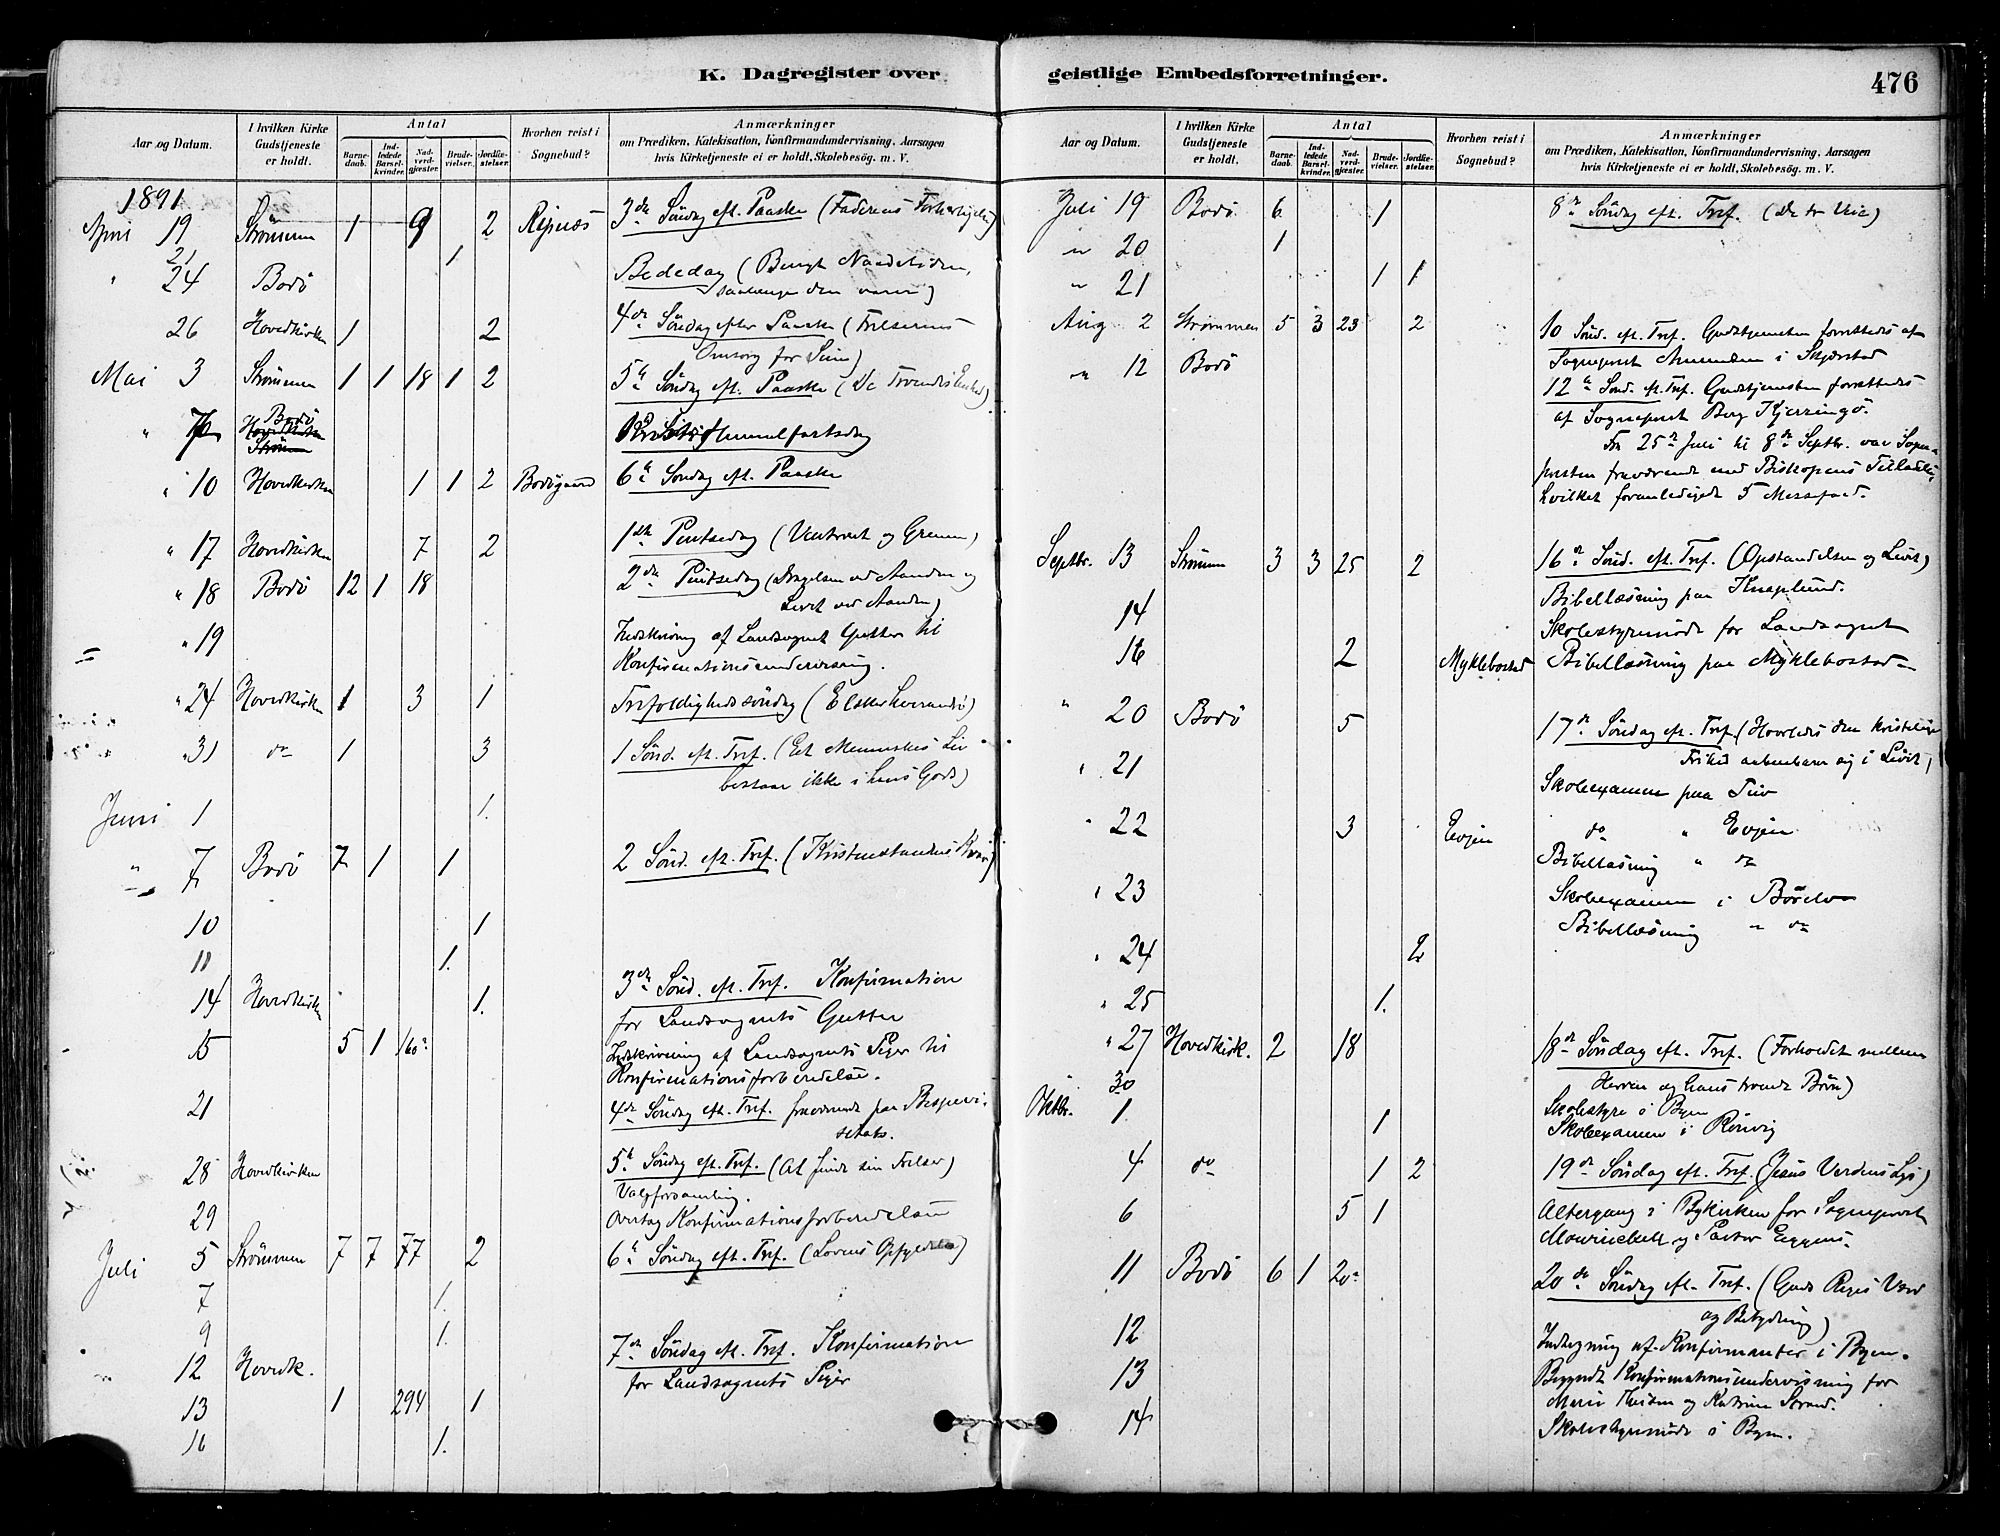 K. Dagregister over
Aar og Datum.
I hvilken Kirke Gudstjeneste er holdt.
Antal
Barnedaab.
Indledede Barselkvinder.
Nadverdgjæster.
Brudevielser.
Jordfæstelser.
Hvorhen reist i Sognebud?
Anmærkninger
om Prædiken, Katekisation, Konfirmandundervisning, Aarsagen
hvis Kirketjeneste ei er holdt, Skolebesög. m. V.
1891
April 19 Strömmen 1 9 2 3die Söndag eft. Paaske (Faderens
21 1
" 24 Bodö Bededag (Benyt Naadetiden,
saalænge den varer)
26 Hovedkirken 1 2 4de Söndag efter Paaske (Frelserens
Omsorg for Sine)
Mai 3 Strömmen 1 1 18 1 2 5te Söndag eft. Paaske (De Troendes Enhed)
" 7 Bodö Kristi Himmelfartsdag
" 10 Hovedkirken 1 1 2 Bodögaard 6te Söndag eft. Paaske
" 17 Hovedkirken 7 2 1ste Pintsedag (Vintræet og Grenene)
" 18 Bodö 12 1 18 2den Pintsedag ( ved Aanden og
Livet ved Aanden)
" 19 Indskrivning af Landsognets Gutter til
Konfirmationsundervisning.
" 24 Hovedkirken 1 3 1 Trefoldighedssöndag (Elsker hverandre)
" 31 do 1 3 1 Sönd. eft. Tref. (Et Menneskes Liv
bestaar ikke i hans Gods)
Juni 1 1.
" 7 Bodö 7 1 1 2 Sönd. eft. Tref. (Kristenstandens
10 1
11 1.
14 Hovedkirken 1. 3die Sönd. eft. Tref. Konfirmation
for Landsognets Gutter
15 5 1 160 Indskrivning af Landsognets Piger til
Konfirmationsforberedelse.
21 4de Söndag eft. Tref. fraværende paa
28 Hovedkirken 5te Söndag eft. Tref. (At finde sin Frelser)
Valgforsamling.
29 Overtog Konfirmationsforberedelsen
Juli 5 Strömmen 7 7 77 2 6te Söndag eft. Tref. (Lovens Opfyldelse)
7 1.
9 1.
12 Hovedk. 7de Söndag eft. Tref. Konfirmation
for Landsognets Piger
13 1 294 1
16 1.
geistlige Embedsforretninger.
476
Aar og Datum.
I hvilken Kirke Gudstjeneste er holdt.
Antal
Barnedaab.
Indledede Barselkvinder.
Nadverdgjæster.
Brudevielser.
Jordfæstelser.
Hvorhen reist i Sognebud?
Anmærkninger
om Prædiken, Katekisation, Konfirmandundervisning, Aarsagen
hvis Kirketjeneste ei er holdt, Skolebesög. m. V.
Juli 19 Bodö 6 1 8de Söndag eft. Tref. (De to Veie)
" 20 1
" 21 1 1
Aug 2 Strömmen 5 3 23 2 10 Sönd. eft. Tref. Gudstjenesten forrettedes af
Sognepræst i Skjerstad
" 12 Bodö 12te Sönd. eft. Tref. Gudstjenesten forrettedes
af Sognepræst Berg Kjerringö.
Fra 25de Juli til 8de Septbr. var Sogne-
præsten fraværende med Biskopens Tilladelse,
hvilket foranledigede 5 Messefald.
Septbr. 13 Strömmen 3 3 25 2 16de Sönd. eft. Tref. (Opstandelsen og Livet)
Bibellæsning paa Knaplund.
14 Skolestyremöde for Landsognet
16 2 Myklebostad Bibellæsning paa Myklebostad
" 20 Bodö 5 17de Söndag eft. Tref. (Hvorledes den kristelige
Frihed aabenbarer sig i Livet)
" 21 Skoleexamen paa
" 22 3 Evjen do " Evjen
Bibellæsning " do
" 23 Skoleexamen i
Bibellæsning " do
" 24 2
" 25 1.
" 27 Hovedkirk. 2 18 18de Söndag eft. Tref. (Forholdet mellem
Herren og hans troende Börn)
30 Skolestyre i Byen
Oktbr. 1 1 Skoleexamen i Rönvig
4 do 1 2 19de Söndag eft. Tref. (Jesus Verdens Lys)
6 5 1 Altergang i Bykirken for Sognepræst
og Pastor
11 Bodö 6 1 20 20de Söndag eft. Tref. (Guds Riges Værd
og Betydning)
12 Indtegning af Konfirmanter i Byen.
13 Begyndt Konfirmationsundervisning for
og Katrine Strand.
14 Skolestyremöde i Byen.